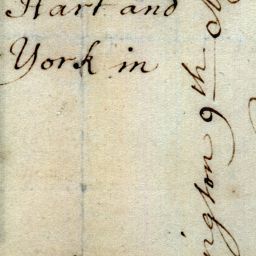 Hart and
York in
ington 9th M